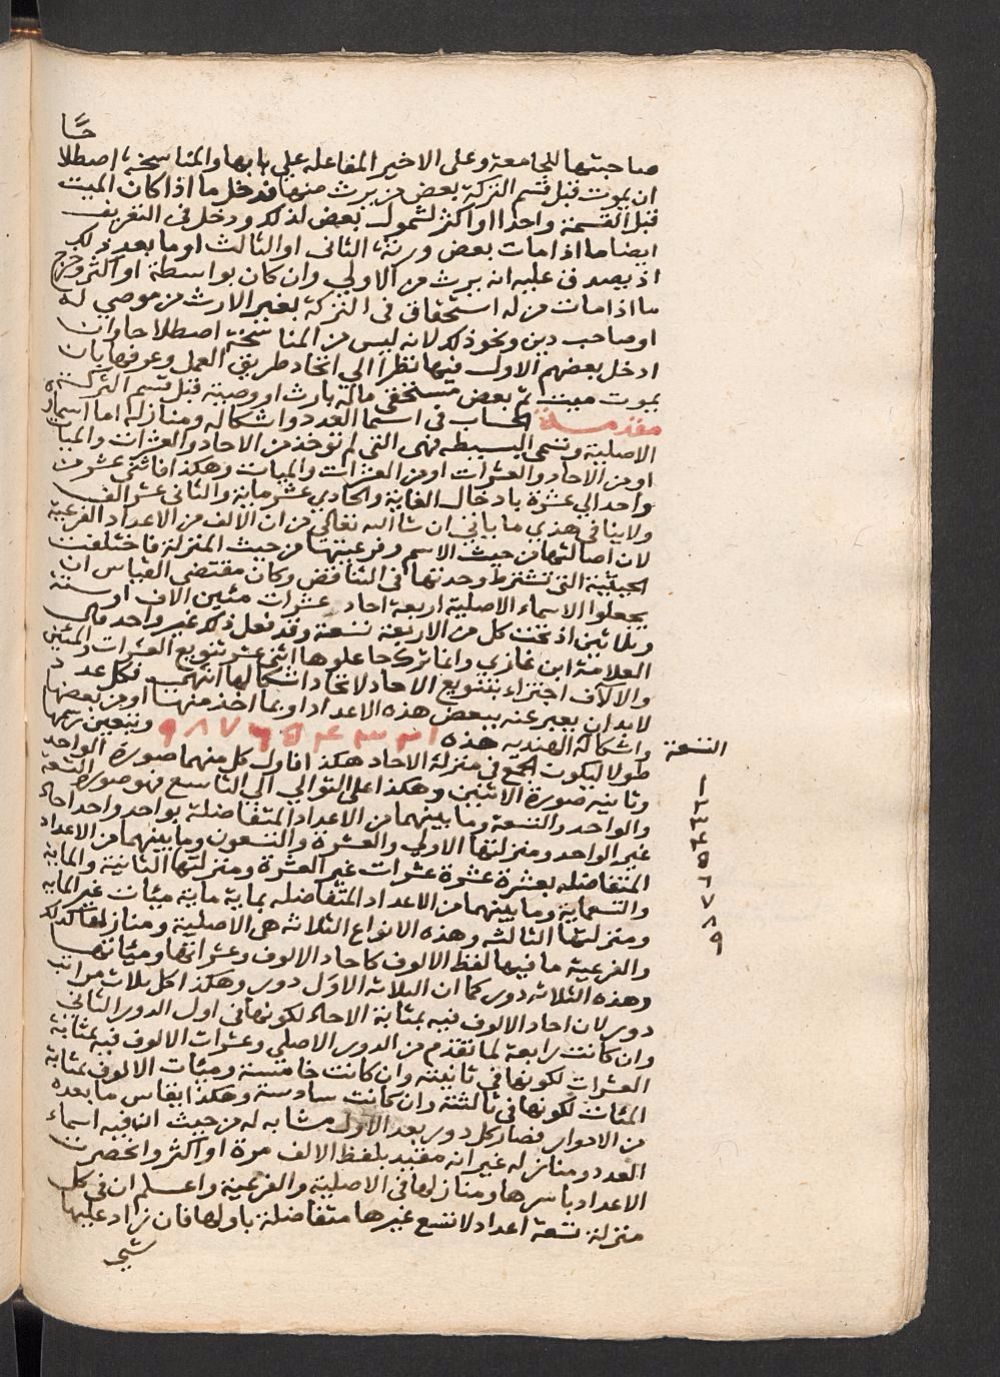 حا
صاحبتها للجامعة وعلى الاخير المفاعله علي بابها والمناسخة اصطلا
ان يموت قبل قسم التركة بعض من يرث منها فدخل ما اذا كان الميت
قبل القسمة واحدا او اكثر لشمول بعض لذلك ودخل في التعريف
ايضا ما اذا مات بعض ورثة الثاني او الثالث او ما بعد ذلك
اذ يصدق عليه انه يرث من الاولي وان كان بواسطة او اكثر وخرج
ما اذا مات من له استحقاق في التركة بغير الارث من موصي له
او صاحب دين ونحو ذلك لانه ليس من المناسخة اصطلاحا وان
ادخل بعضهم الاول فيها نظرا الي اتحاد طريق العمل وعرفها بان
يموت ميت ثم بعض مستحقي ماله بارث او وصية قبل قسم التركة
مقدمة الحساب في اسما العدد واشكاله ومنازله اما اسماوه
الاصلية وتسمى البسيطه فهي التي لم توخذ من الاحاد والعشرات والميات
او من الاحاد والعشرات او من العشرات والميات وهكذا فاثني عشر من
واحد الي عشرة بادخال الغاية والحادي عشر ماية والثاني عشر الف
ولا ينافي هذي ما ياتي ان شا الله تعالي من ان الالف من الاعداد الفرعية
لان اصالتها من حيث الاسم وفرعيتها من حيث المنزلة فاختلفت
الحيثية التي تشترط وحدتها في التناقض وكان مقتضى القياس ان
يجعلوا الاسماء الاصلية اربعة احاد عشرات مئين الاف او ستة
وثلاثين اذ تحت كل من الاربعة تسعة وقد فعل ذلك غير واحد قال
العلامة ابن غازي وانما ترك جاعلوها اثني عشر تنويع العشرات والمئين
والالاف اجتزاء بتنويع الاحاد لاتحاد اشكالها انتهي فكل عدد
لا بد ان يعبر عنه ببعض هذه الاعداد او بما اخذ منها او من بعضها
واشكاله الهنديه هذه ١ ٢ ٣ ٤ ٥ ٦ ٧ ٨ ٩ ويتعين رسمها
طولا ليكون الجمع في منزلة الاحاد هكذا فاول كل منهما صورة الواحد
وثانيه صورة الاثنين وهكذا على التوالي الي التاسع فهو صورة التسعة
والواحد والتسعة وما بينهما من الاعداد المتفاضلة بواحد واحد احاد
غير الواحد ومنزلتها الاولي والعشرة والتسعون وما بينهما من الاعداد
المتفاضله بعشرة عشرة عشرات غير العشرة ومنزلتها الثانية والماية
والتسعماية وما بينهما من الاعداد المتفاضله بماية ماية ميات غير المايه
ومنزلتها الثالثه وهذه الانواع الثلاثه هي الاصلية ومنازلها كذلك
والفرعية ما فيها لفظ الالوف كاحاد الالوف وعشراتها ومياتها
وهذه الثلاثه دور كما ان الثلاثه الاول دور وهكذا كل ثلاث مراتب
دور لان احاد الالوف فيه بمثابة الاحاد لكونها في اول الدور الثاني
وان كانت رابعة لما تقدم من الدور الاصلي وعشرات الالوف فيه بمثابة
العشرات لكونها في ثانيته وان كانت خامسة وميات الالوف بمثابة
المئات لكونها في ثالثته وان كانت سادسة وهكذا يقاس ما بعده
من الادوار فصار كل دور بعد الاول مشابه له من حيث ان فيه اسماء
العدد ومنازله غير انه مقيد بلفظ الالف مرة او اكثر وانحصرت
الاعداد باسرها ومنازلها في الاصلية والفرعية واعلم ان في كل
منزلة تسعة اعداد لا تسع غيرها متفاضلة باولها فان زاد عليها
شي
التسعة
١
٢
٣
٤
٥
٦
٧
٨
٩